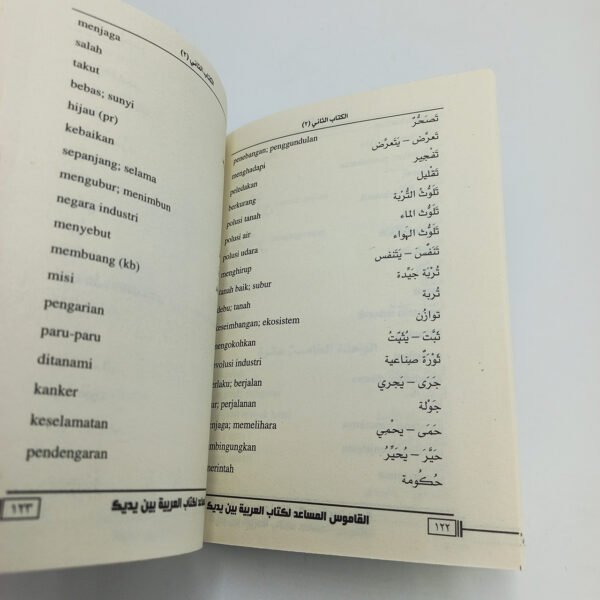 الكتاب الثاني (٢)
تَصَحُّرٌ penebangan; penggundulan
تَعرَّض – يَتَعرَّض menghadapi
تَفْجير peledakan
تَقْليل berkurang
تَلَوُّثُ التُّرْبَة polusi tanah
تَلَوُّث الماء polusi air
تَلَوُّث الهَواء polusi udara
تَنَفَّسَ – يَتَنفس menghirup
تُرْبَة جَيِّدة tanah baik; subur
تُربة debu; tanah
توازُن keseimbangan; ekosistem
ثَبَّتَ – يُثَبِّتُ
ثَوْرَةٌ صناعية industri
جَرَى – يَجري berjalan
جَوْلَة perjalanan
حَمَى – يحْمِي memelihara
حَيَّرَ – يُحَيِّرُ
حُكُومة
١٢٢ القاموس المساعد لكتاب العربية بين يديك
الكتاب الثاني (٢)
menjaga
salah
takut
bebas; sunyi
hijau (pr)
kebaikan
sepanjang; selama
mengubur; menimbun
negara industri
menyebut
membuang (kb)
misi
pengarian
paru-paru
ditanami
kanker
keselamatan
pendengaran
لكتاب العربية بين يديك ١٢٣